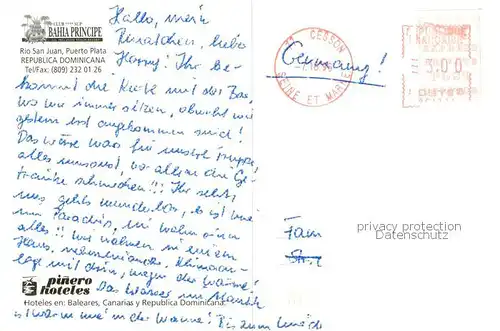 CLUB HOTEL
BAHIA PRINCIPE
Rio San Juan, Puerto Plata
REPUBLICA DOMINICANA
Tel/Fax: (809) 232 01 26
Hallo, mein
liebe
Harry! Ihr be-
kommt die Karte mit der Bar,
wo wir immer sitzen, obwohl wir
gestern erst angekommen sind!
Das wäre was für unsere Truppe!
alles umsonst, vor allem die Ge-
tränke schmecken!!! Ihr seht,
uns gehts wunderbar, es ist wie
im Paradies, wir haben
alles!! Wir wohnen in einem
Haus, nebeneinander, Klimaan-
lage mit drin, wegen der Wärme!
Das Wasser im Atlantik
is warm wie in der Wanne! Bis zum
piñero
hoteles
Hoteles en: Baleares, Canarias y Republica Dominicana
77 CESSON
SEINE ET MARNE
Germany!
3,00
Fam
privacy protection
Datenschutz